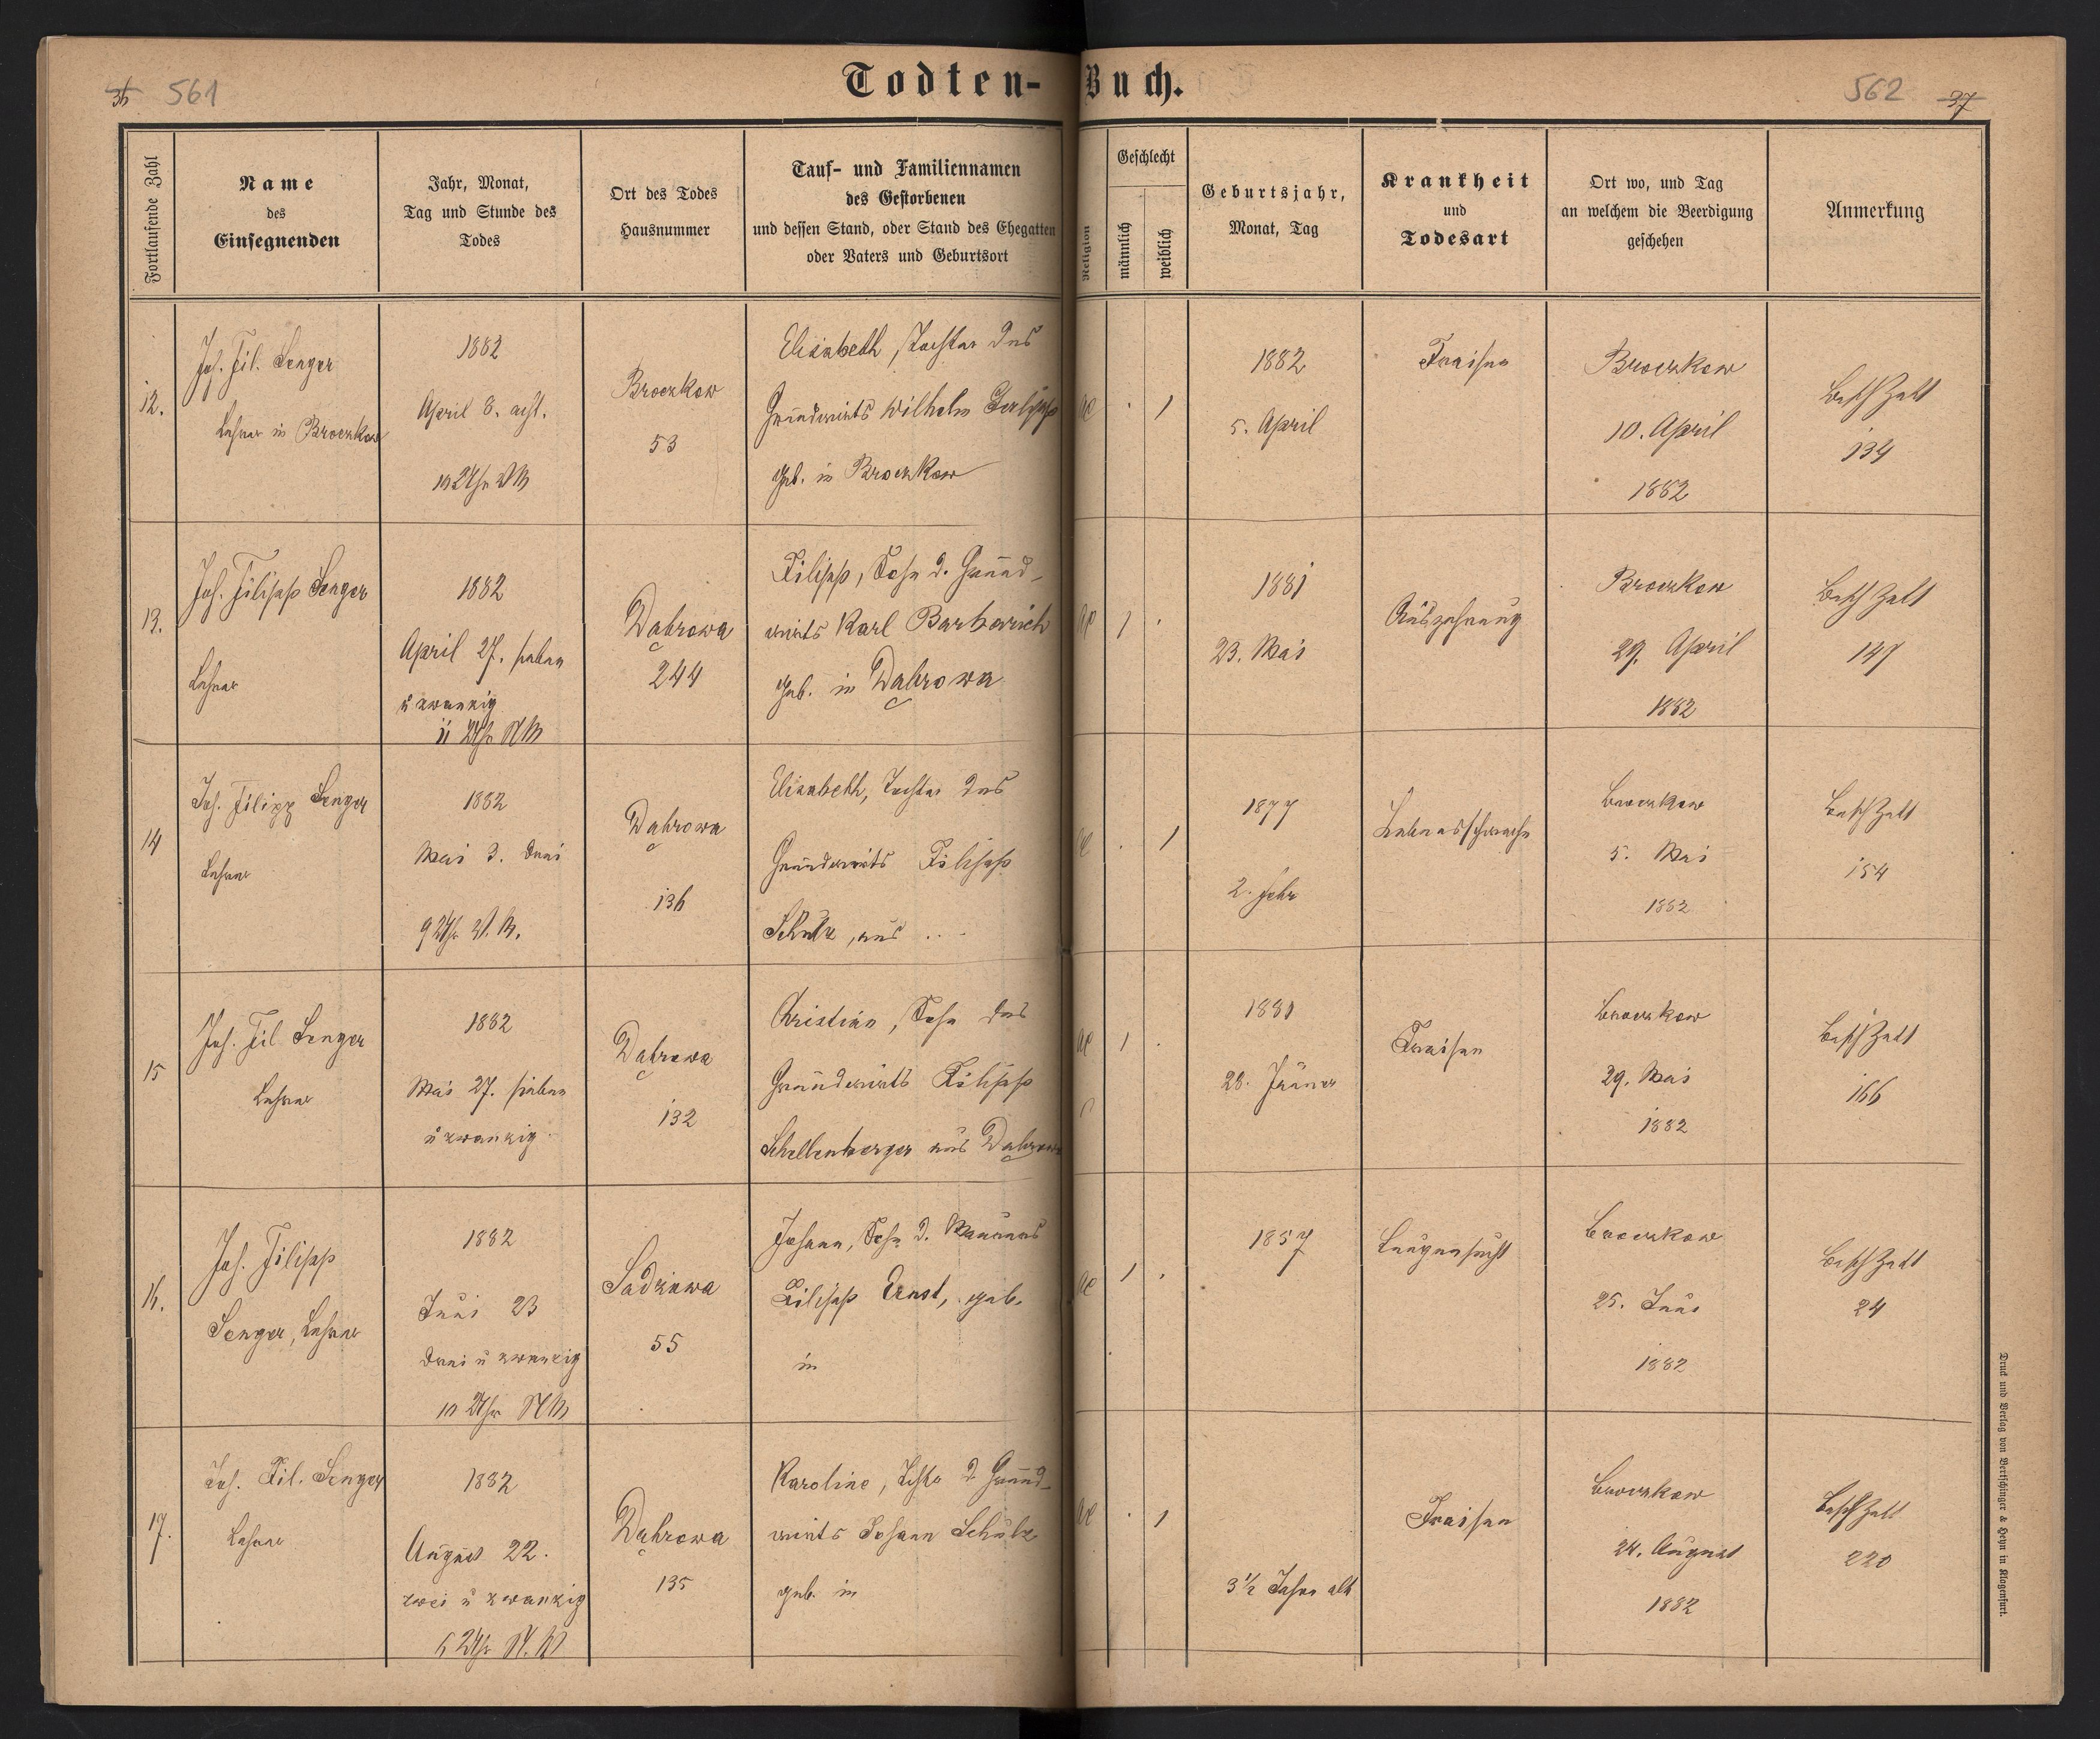 36 561
Todten-Buch.
562 37
Fortlaufende Zahl
Name
des
Einsegnenden
Jahr, Monat,
Tag und Stunde des
Todes
Ort des Todes
Hausnummer
Tauf- und Familiennamen
des Gestorbenen
und dessen Stand, oder Stand des Ehegatten
oder Vaters und Geburtsort
Religion
Geschlecht
männlich
weiblich
Geburtsjahr,
Monat, Tag
Krankheit
und
Todesart
Ort wo, und Tag
an welchem die Beerdigung
geschehen
Anmerkung
12.
Joh. Fil. Senger
Lehrer in Broczkow
1882
April 8. acht.
10 Uhr VM
Broczkow
53
Elisabeth, Tochter des
Grundwirts Wilhelm
geb. in Broczkow
1
1882
5. April
Fraisen
Broczkow
10. April
1882
Besch Zett
134
13.
Joh. Filipp Senger
Lehrer
1882
April 27. sieben
u zwanzig
11 Uhr NM
Dąbrowa
244
Filipp, Sohn d. Grund-
wirts Karl Barbarich
geb. in Dąbrowa
1
1881
23. Mai
Auszehrung
Broczkow
29. April
1882
Besch Zett
147
14
Joh. Filipp Senger
Lehrer
1882
Mai 3. drei
9 Uhr V.M.
Dąbrowa
136
Elisabeth, Tochter des
Grundwirts Filipp
Schulz, aus ...
1
1877
2. Febr
Lebensschwäche
Broczkow
5. Mai
1882
Besch Zett
154
15
Joh. Fil Senger
Lehrer
1882
Mai 27. sieben
u zwanzig
Dąbrowa
132
Christian, Sohn des
Grundwirts Filipp
Schellenberger aus Dąbrowa
1
1881
28. Jäner
Fraisen
Broczkow
29. Mai
1882
Besch Zett
166
16.
Joh. Filipp
Senger, Lehrer
1882
Juni 23
drei u zwanzig
10 Uhr NM
Sadzawa
55
Johann, Sohn d. Maurers
Filipp Ernst, geb.
in
1
1857
Lungensucht
Broczkow
25. Juni
1882
Besch Zett
24
17.
Joh. Fil. Senger
Lehrer
1882
August 22.
zwei u zwanzig
6 Uhr N.M
Dąbrowa
135
Karoline, Tochter d Grund-
wirts Johann Schulz
geb. in
1
3 1/2 Jahre alt
Fraisen
Broczkow
24. August
1882
Besch Zett
220
Druck und Verlag von Bertschinger & Heyn in Klagenfurt.